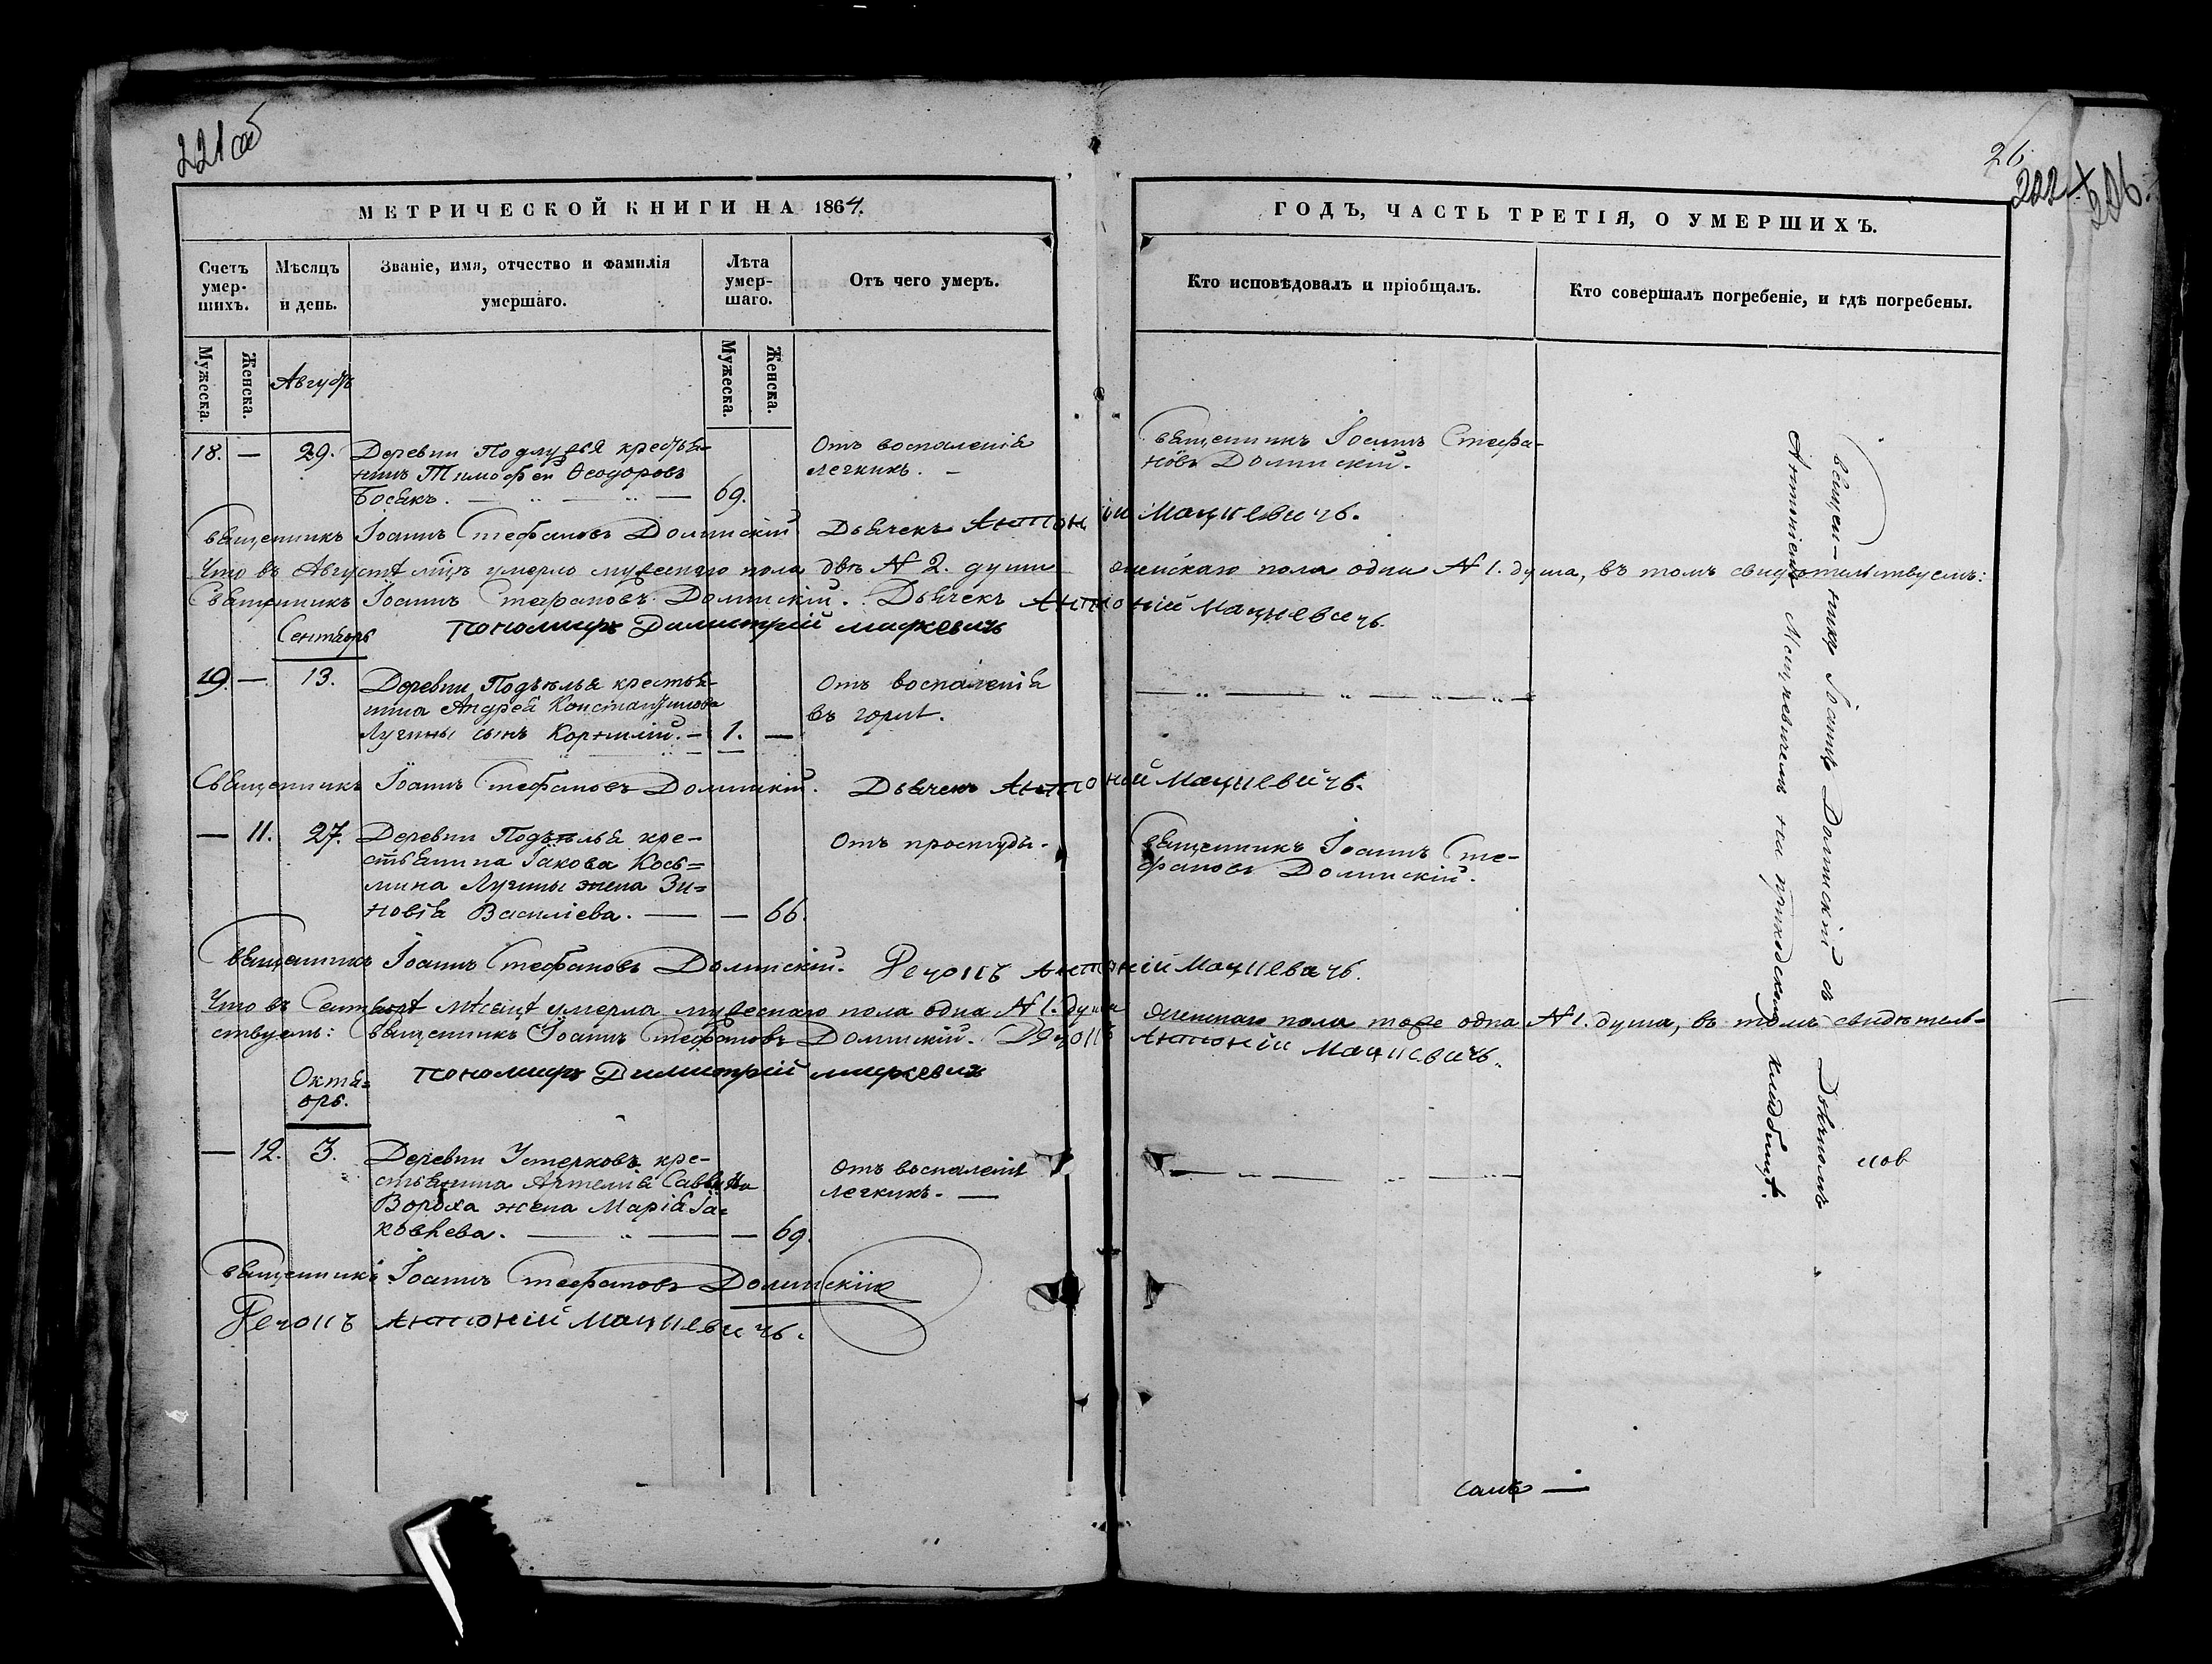 221 об
26.
222
206.
МЕТРИЧЕСКОЙ КНИГИ НА 1864.
ГОДЪ, ЧАСТЬ ТРЕТІЯ, О УМЕРШИХЪ.
Счетъ умер-шихъ.
Мѣсяцъ и день.
Званіе, имя, отчество и фамилія умершаго.
Лѣта умер-шаго.
Отъ чего умеръ.
Кто исповѣдовалъ и пріобщалъ.
Кто совершалъ погребеніе, и гдѣ погребены.
Мужеска.
Женска.
Августъ
Мужеска.
Женска.
18. — 29. Деревни Подлужья крестья-
нинъ Тимофей Ѳеодоровъ
Босякъ. — „ — „ — 69.
Отъ воспаленія
легкихъ. —
Священникъ Іоаннъ Стефа-
новъ Долинскій.
Священникъ Іоаннъ Стефановъ Долинскій Дьячекъ Антоній Мацкевичъ.
Что въ Августѣ мцѣ умерло мужескаго пола двѣ № 2. души женскаго пола одна № 1. душа, въ томъ свидѣтельствуемъ:
Священникъ Іоаннъ Стефановъ Долинскій. Дьячекъ Антоній Мацкевичъ.
Пономарь Димитрій Маркевичъ
Сентябрь
19. — 13. Деревни Подъѣлья крестья-
нина Андрея Константинова
Лучины сынъ Корнилій. — 1. —
Отъ воспаленія
въ горлѣ.
— „ — „ — „ —
Священникъ Іоаннъ Стефановъ Долинскій. Дьячекъ Антоній Мацкевичъ.
— 11. 27. Деревни Подъѣлья кре-
стьянина Іакова Кось=
мина Лучины жена Зи=
новія Василіева. — — 66.
Отъ простуды.
Священникъ Іоаннъ Сте-
фановъ Долинскій.
Священникъ Іоаннъ Стефановъ Долинскій. Антоній Мацкевичъ.
Что въ Сентябрѣ мѣсяцѣ умерла мужескаго пола одна № 1. душа женскаго пола тоже одна № 1. душа, въ томъ свидѣтель-
ствуемъ: Священникъ Іоаннъ Стефановъ Долинскій. Антоній Мацкевичъ.
Пономарь Димитрій Маркевичъ
Октя=
брь.
— 12. 3. Деревни Устерковъ кре-
стьянина Артемія Саввина
Вороха жена Марія Іа=
ковлева. — „ — — 69.
Отъ воспаленія
легкихъ. —
— „ — „ —
Священникъ Іоаннъ Стефановъ Долинскій
Антоній Мацкевичъ.
Священникъ Іоаннъ Долинскій съ Дьячкомъ
Антоніемъ Мацкевичемъ на приходскомъ кладбищѣ.
нов
самъ —